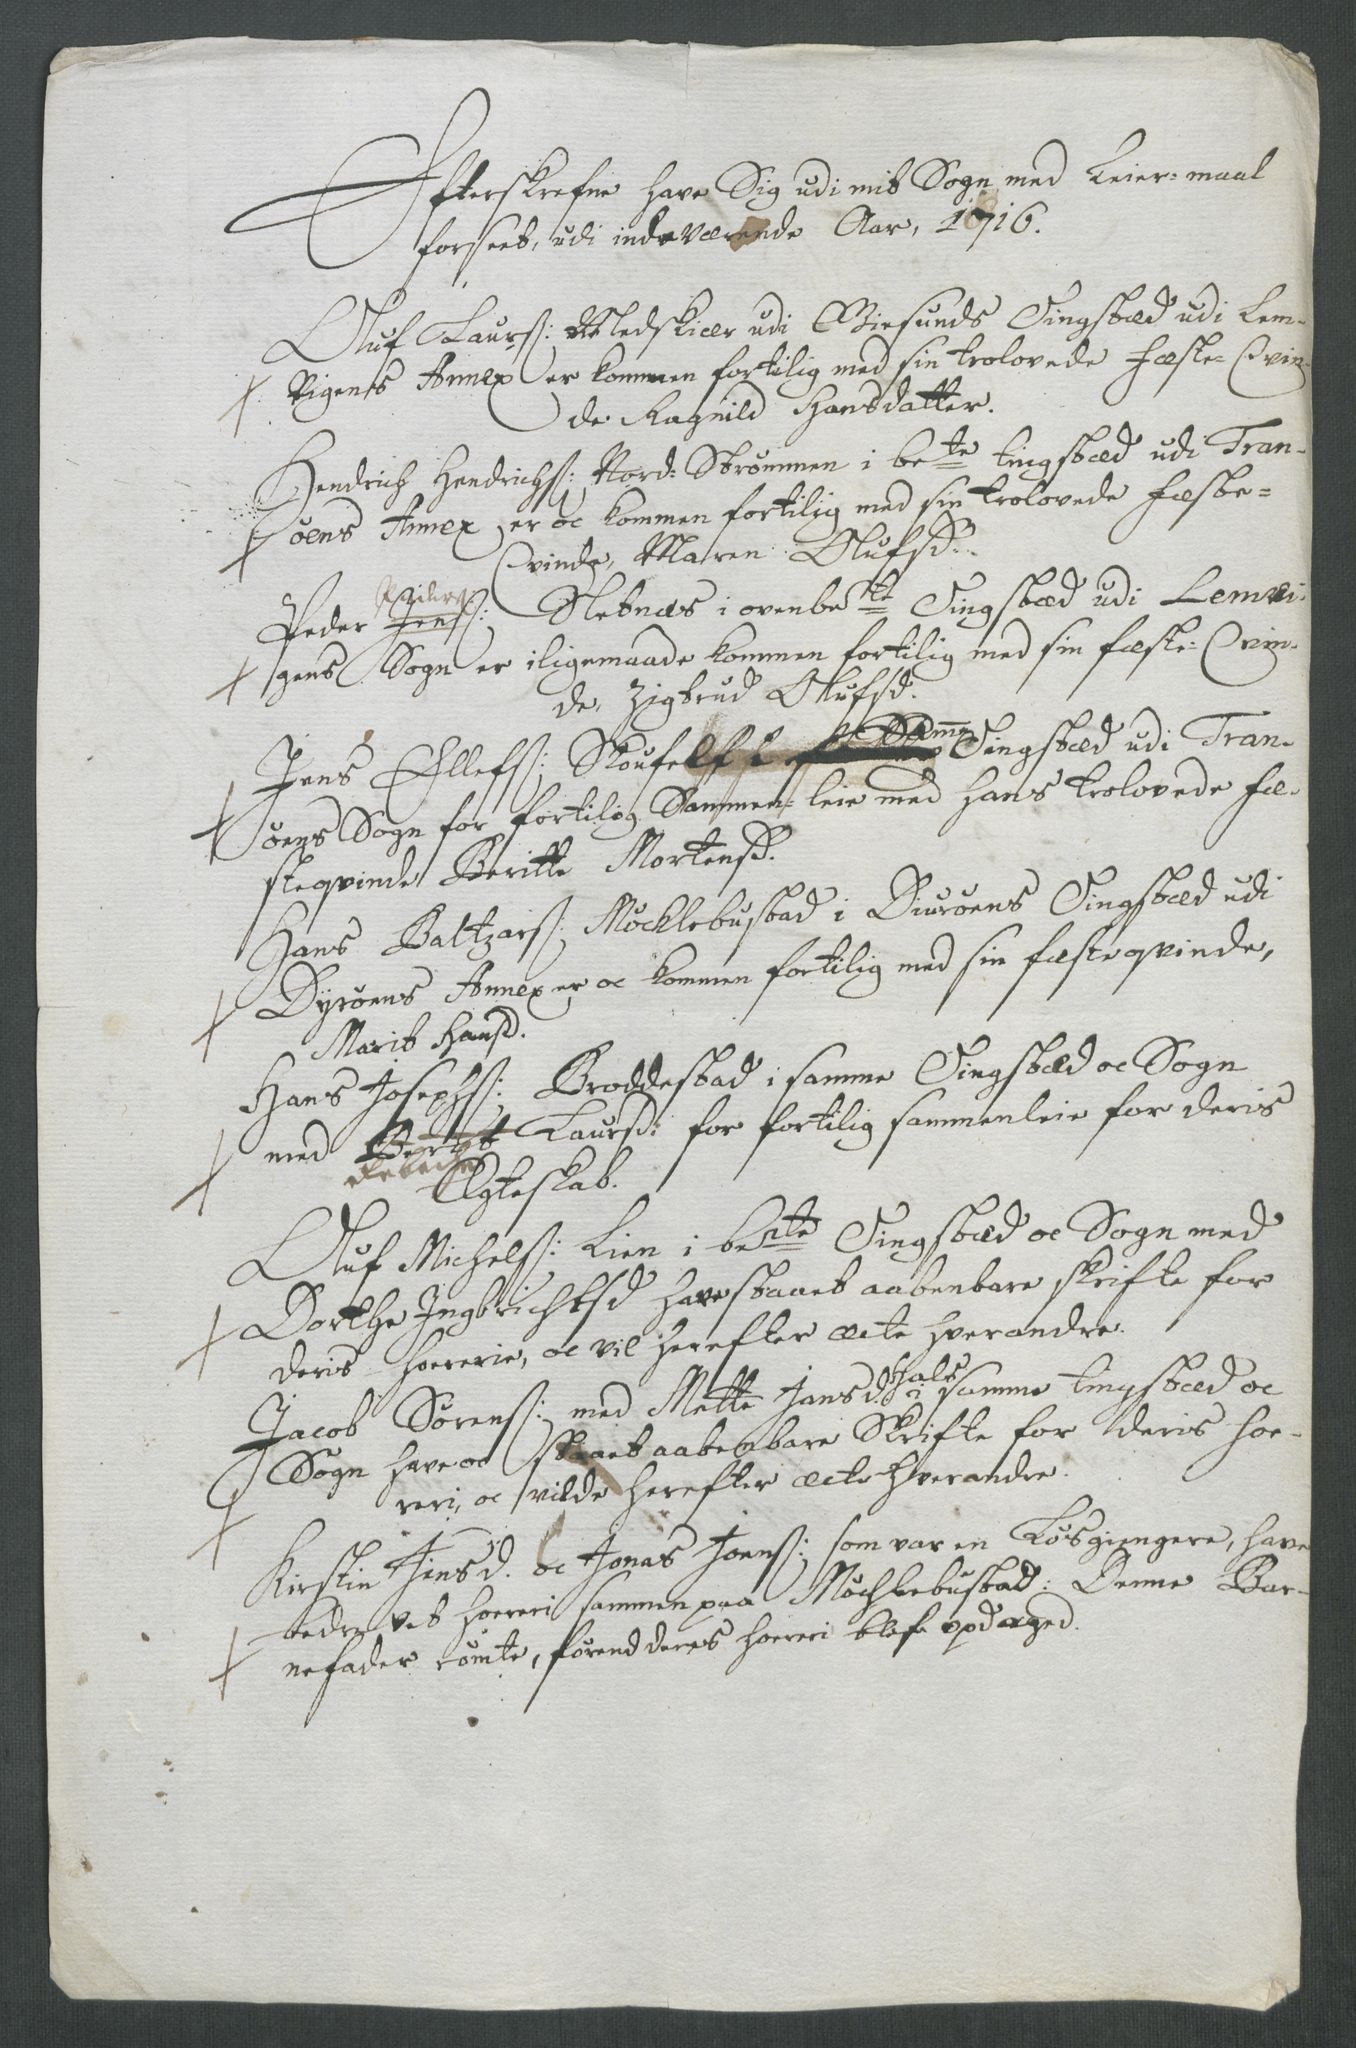 Efterskrefne have Sig udi mit Sogn med Leier-maal
forseet, udi indeværende Aar, 1716.
Oluf Laurs: Mledskiær udi Giesunds Tingstæd udi Lem-
vigens Annex er kommen fortilig med sin trolovede Fæste-Qvin-
de Ragnild Hansdatter.
Hendrich Hendrichs: Nord-Strømmen i bete tingstæd udi Tran-
øens Annex er oc kommen fortilig med sin trolovede Fæste-
Qvinde, Maren Olufsd:
Peder Jens: Sletnæs i ovenbete Tingstæd udi Lemvi-
gens Sogn er iligemaade kommen fortilig med sin fæste-Qvin-
de, Zigtrud Olufsd.
Samme
Jens Ellefs: Skoufelf i Tingstæd udi Tran-
øens Sogn for fortilig Sammen-leie med hans trolovede Fæ-
steqvinde Beritte Mortensd.
Hans Baltzars: Møcklebustad i Diurøens Tingstæd udi
Dyrøens Annex er oc kommen fortilig med sin fæsteqvinde,
Marit Hansd.
Hans Josephs: Broddestad i samme Tingstæd oc Sogn
med Berit Laursd: for fortilig sammenleie for deris
Rebecha
Ægteskab.
Oluf Michels: Lien i bemte Tingstæd oc Sogn med
Dorthe Ingbrichtsd have staaet aabenbare skrifte for
deris hoererie, oc vil herefter ægte hverandre.
Jacob Sørens: med Mette Jansd. Hals i samme tingstæd oc
Sogn have oc staaet aabenbare Skrifte for deris hoe-
reri, oc vilde herefter ægte hverandre.
Kirstin Jensd. oc Jonas Joens: som var en Løsgiengere, have
bedrevet hoereri sammen paa Møchlebustad: Denne Bar-
nefader rømte, førend deres hoereri blef opdaged.